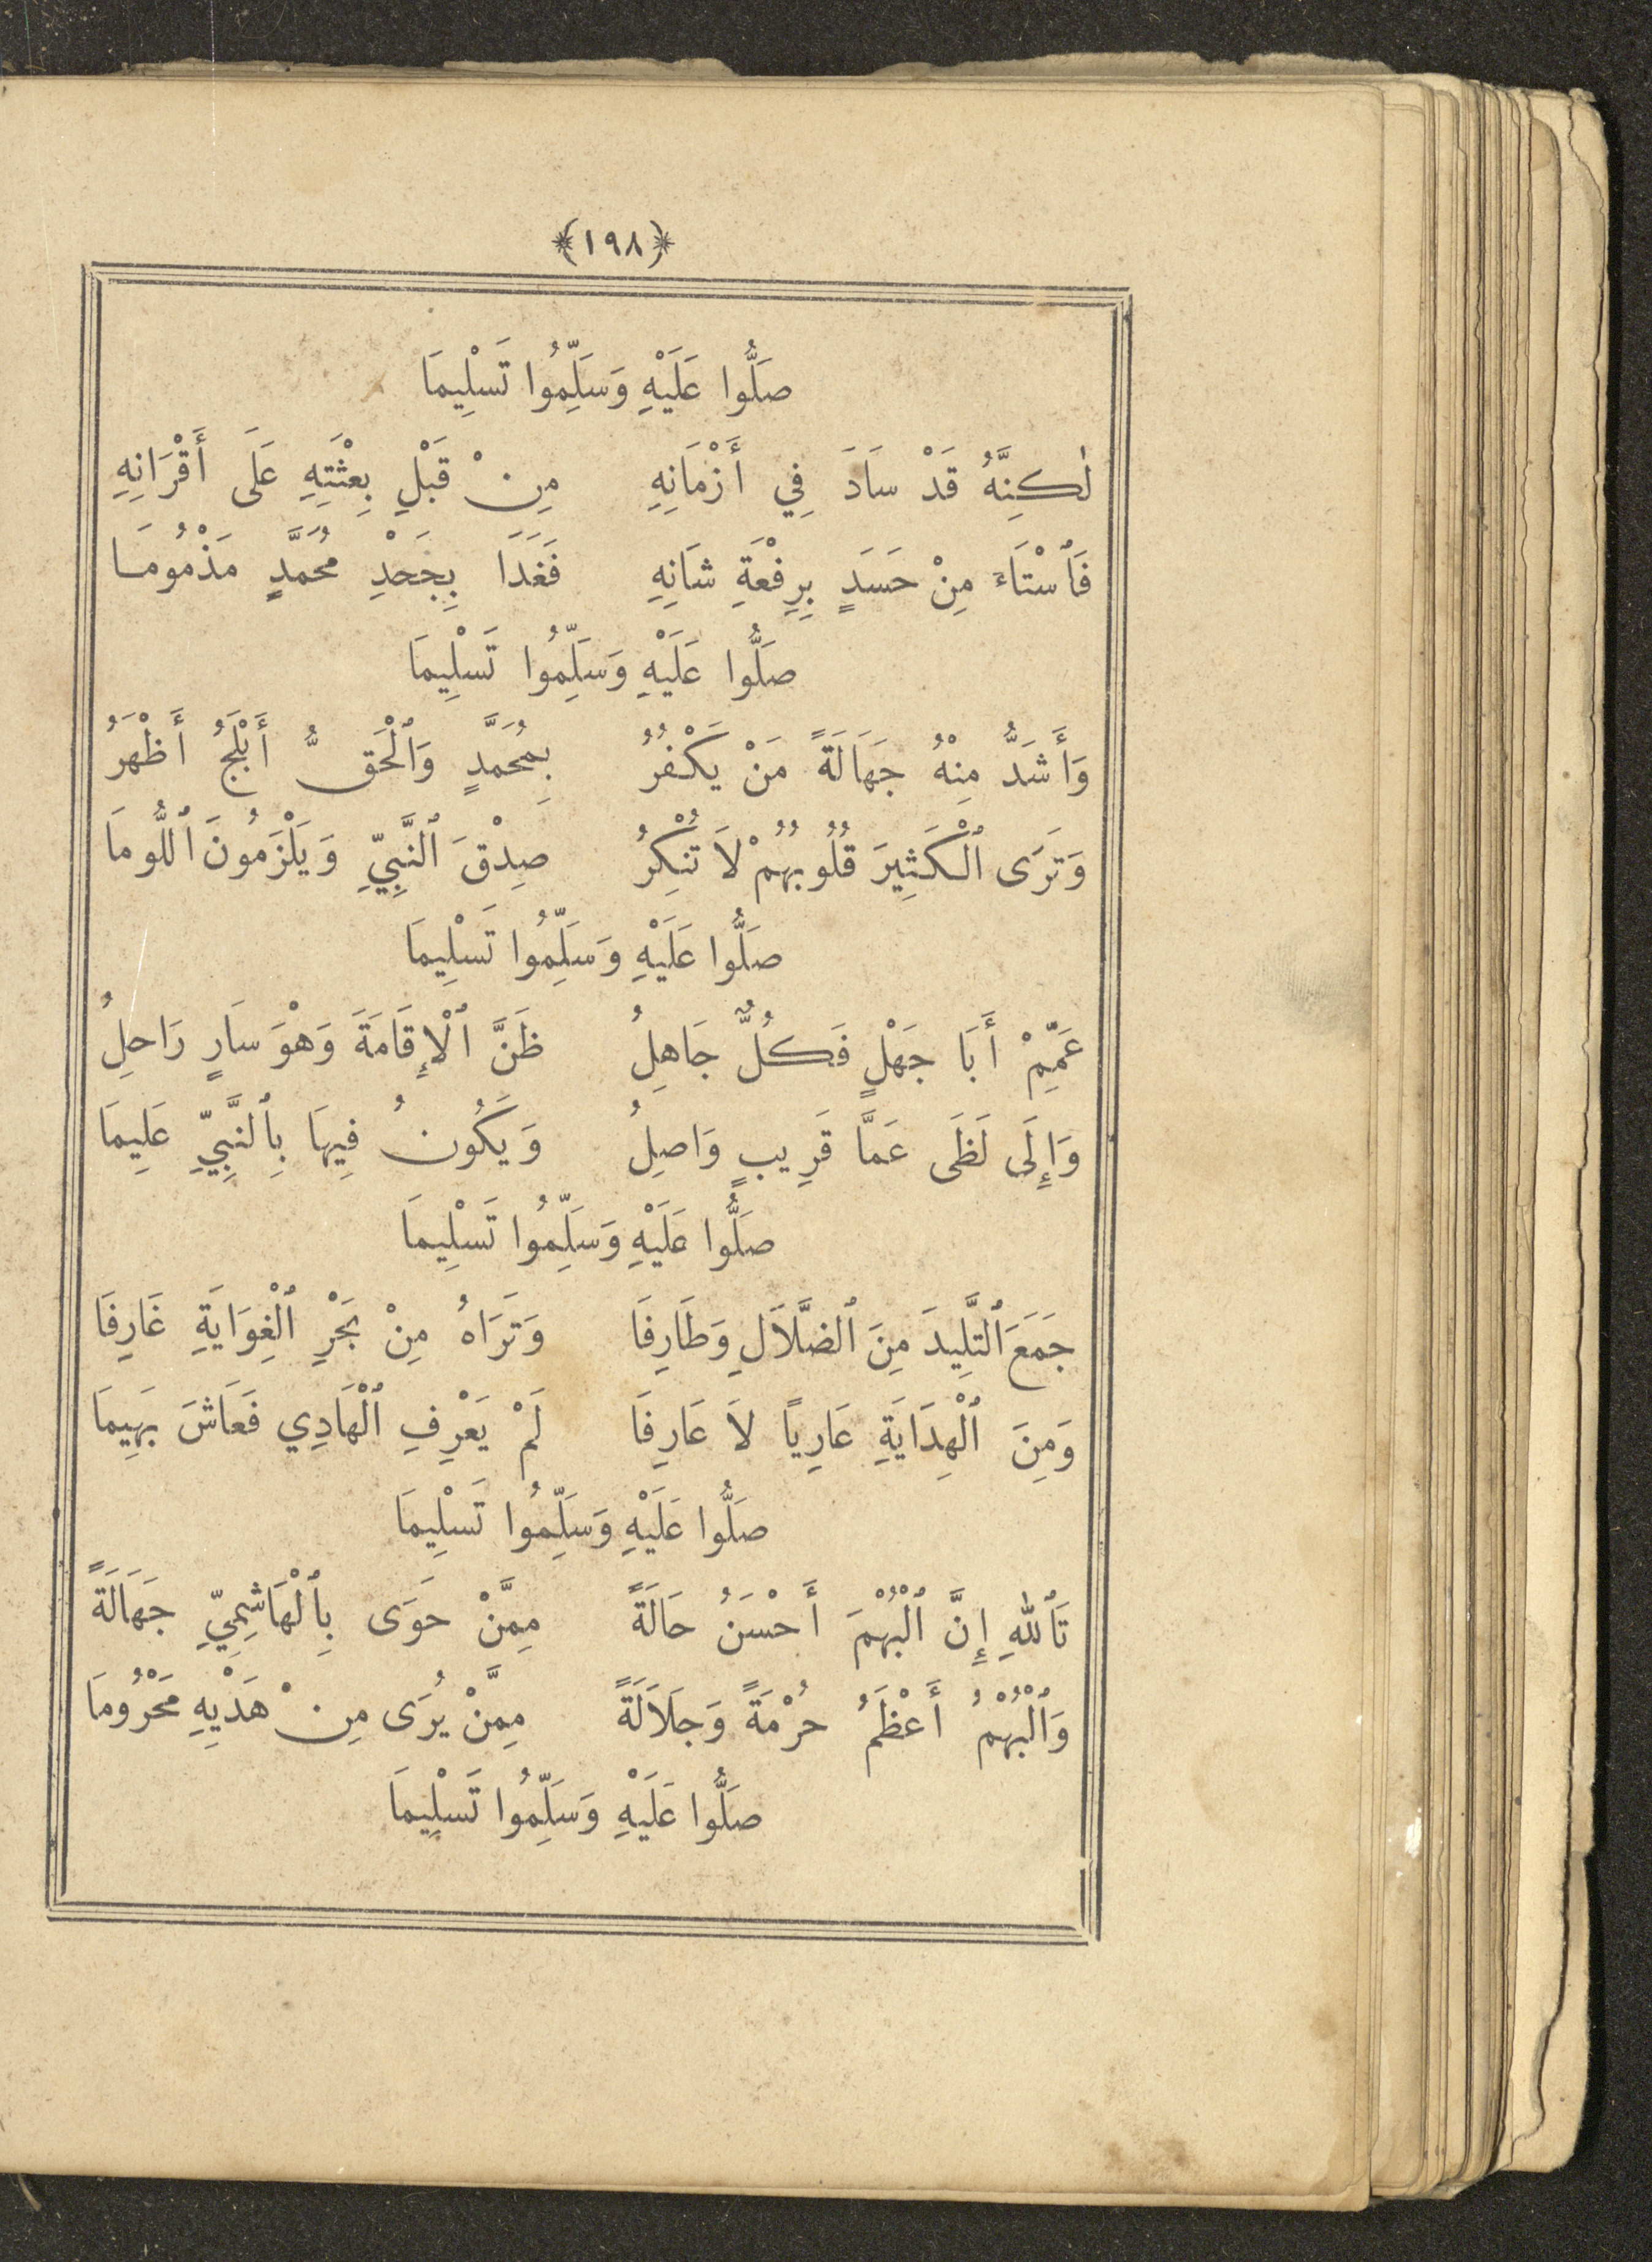 ﴿١٩٨﴾
صَلُّوا عَلَيْهِ وَسَلِّمُوا تَسْلِيمَا
لٰكِنَّهُ قَدْ سَادَ فِي أَزْمَانِهِ مِنْ قَبْلِ بِعْثَتِهِ عَلَى أَقْرَانِهِ
فَٱسْتَاءَ مِنْ حَسَدٍ بِرِفْعَةِ شَانِهِ فَغَدَا بِجَحْدِ مُحَمَّدٍ مَذْمُومَا
صَلُّوا عَلَيْهِ وَسَلِّمُوا تَسْلِيمَا
وَأَشَدُّ مِنْهُ جَهَالَةً مَنْ يَكْفُرُ بِمُحَمَّدٍ وَٱلْحَقُّ أَبْلَجُ أَظْهَرُ
وَتَرَى ٱلْكَثِيرَ قُلُوبُهُمْ لَا تُنْكِرُ صِدْقَ ٱلنَّبِيِّ وَيَلْزَمُونَ ٱللُّومَا
صَلُّوا عَلَيْهِ وَسَلِّمُوا تَسْلِيمَا
عَمِّمْ أَبَا جَهْلٍ فَكُلٌّ جَاهِلُ ظَنَّ ٱلْإِقَامَةَ وَهْوَ سَارٍ رَاحِلُ
وَإِلَى لَظَى عَمَّا قَرِيبٍ وَاصِلُ وَيَكُونُ فِيهَا بِٱلنَّبِيِّ عَلِيمَا
صَلُّوا عَلَيْهِ وَسَلِّمُوا تَسْلِيمَا
جَمَعَ ٱلتَّلِيدَ مِنَ ٱلضَّلَالِ وَطَارِفَا وَتَرَاهُ مِنْ بَحْرِ ٱلْغِوَايَةِ غَارِفَا
وَمِنَ ٱلْهِدَايَةِ عَارِيًا لَا عَارِفَا لَمْ يَعْرِفِ ٱلْهَادِي فَعَاشَ بَهِيمَا
صَلُّوا عَلَيْهِ وَسَلِّمُوا تَسْلِيمَا
تَٱللهِ إِنَّ ٱلْبُهْمَ أَحْسَنُ حَالَةً مِمَّنْ حَوَى بِٱلْهَاشِمِيِّ جَهَالَةً
وَٱلْبُهْمُ أَعْظَمُ حُرْمَةً وَجَلَالَةً مِمَّنْ يُرَى مِنْ هَدْيِهِ مَحْرُومَا
صَلُّوا عَلَيْهِ وَسَلِّمُوا تَسْلِيمَا